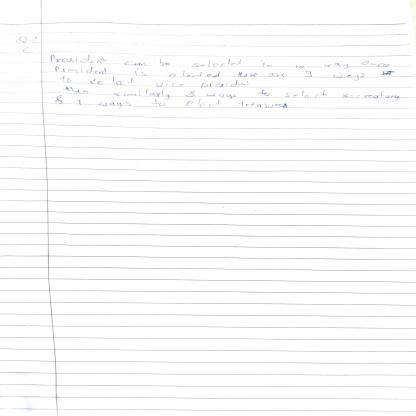 Q2
C
President can be selected in 10 way once
President is elected there are 9 ways
to select vice president
then similarly 8 ways to select secretary
& 7 ways to elect treasurer